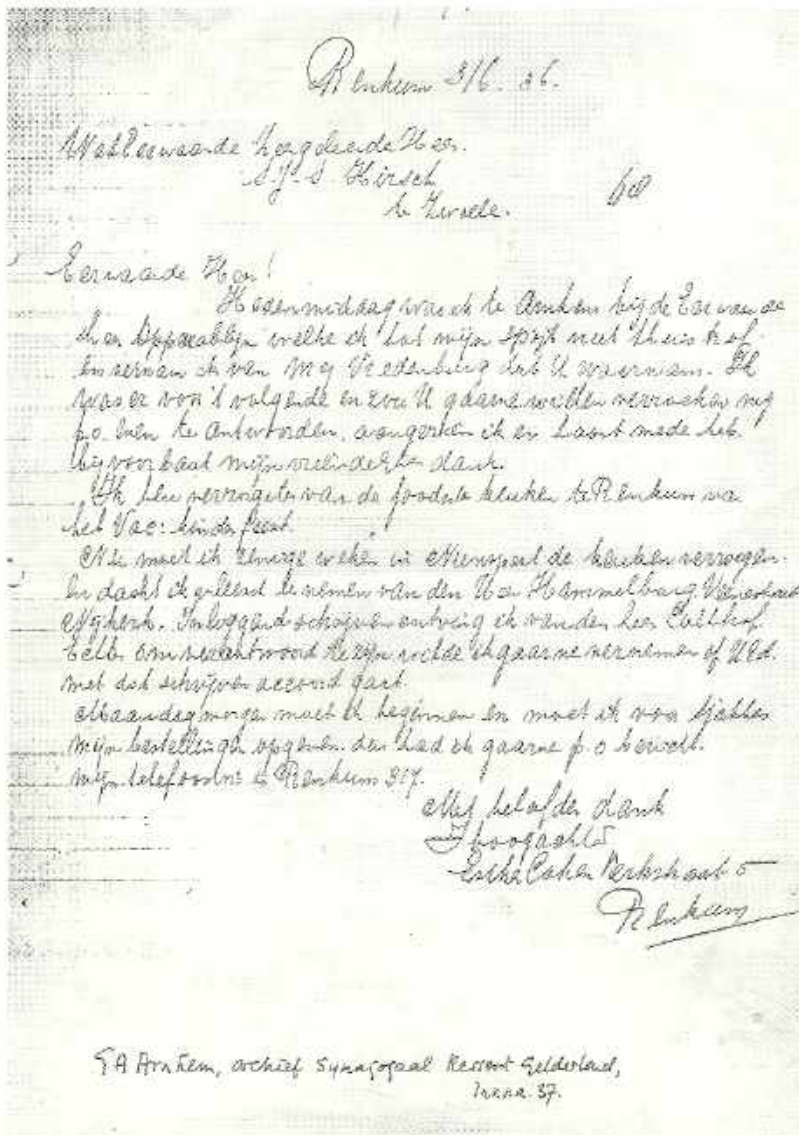 Renkum 3/6. 36.
WelEerwaarde Zeergeleerde Heer.
S. J. S Hirsch
te Zwolle.
Eerwaarde Heer!
Hedenmiddag was ik te Arnhem bij de Eerwaarde
Heer welke ik tot mijn spijt niet thuis trof.
En vernam ik van Mej Vredenburg dat U waarnam. Ik
was er voor 't volgende en zou U gaarne willen verzoeken mij
p.o. even te antwoorden, aangezien ik er haast mede heb.
bij voorbaat mijn vriendelijke dank.
Ik ben verzorgster van de joodsche keuken te Renkum van
het Vac: kinderfeest.
Nu moet ik eenige weken in Nunspeet de keuken verzorgen.
En dacht ik vleesch te nemen van den Heer Hammelburg
Nijkerk. Inliggend schrijven ontving ik van den heer
om verantwoord te zijn wilde ik gaarne vernemen of UEd.
met dat schrijven accoord gaat.
Maandagmorgen moet ik beginnen en moet ik voor
mijn bestellingen opgeven. dus had ik gaarne p.o bericht.
mijn telefoonnr is Renkum 317.
Met beleefden dank
Hoogachtd
Esther Cohen Kerkstraat 5
Renkum
GA Arnhem, archief Synagogaal Ressort Gelderland,
Inv.nr. 37.